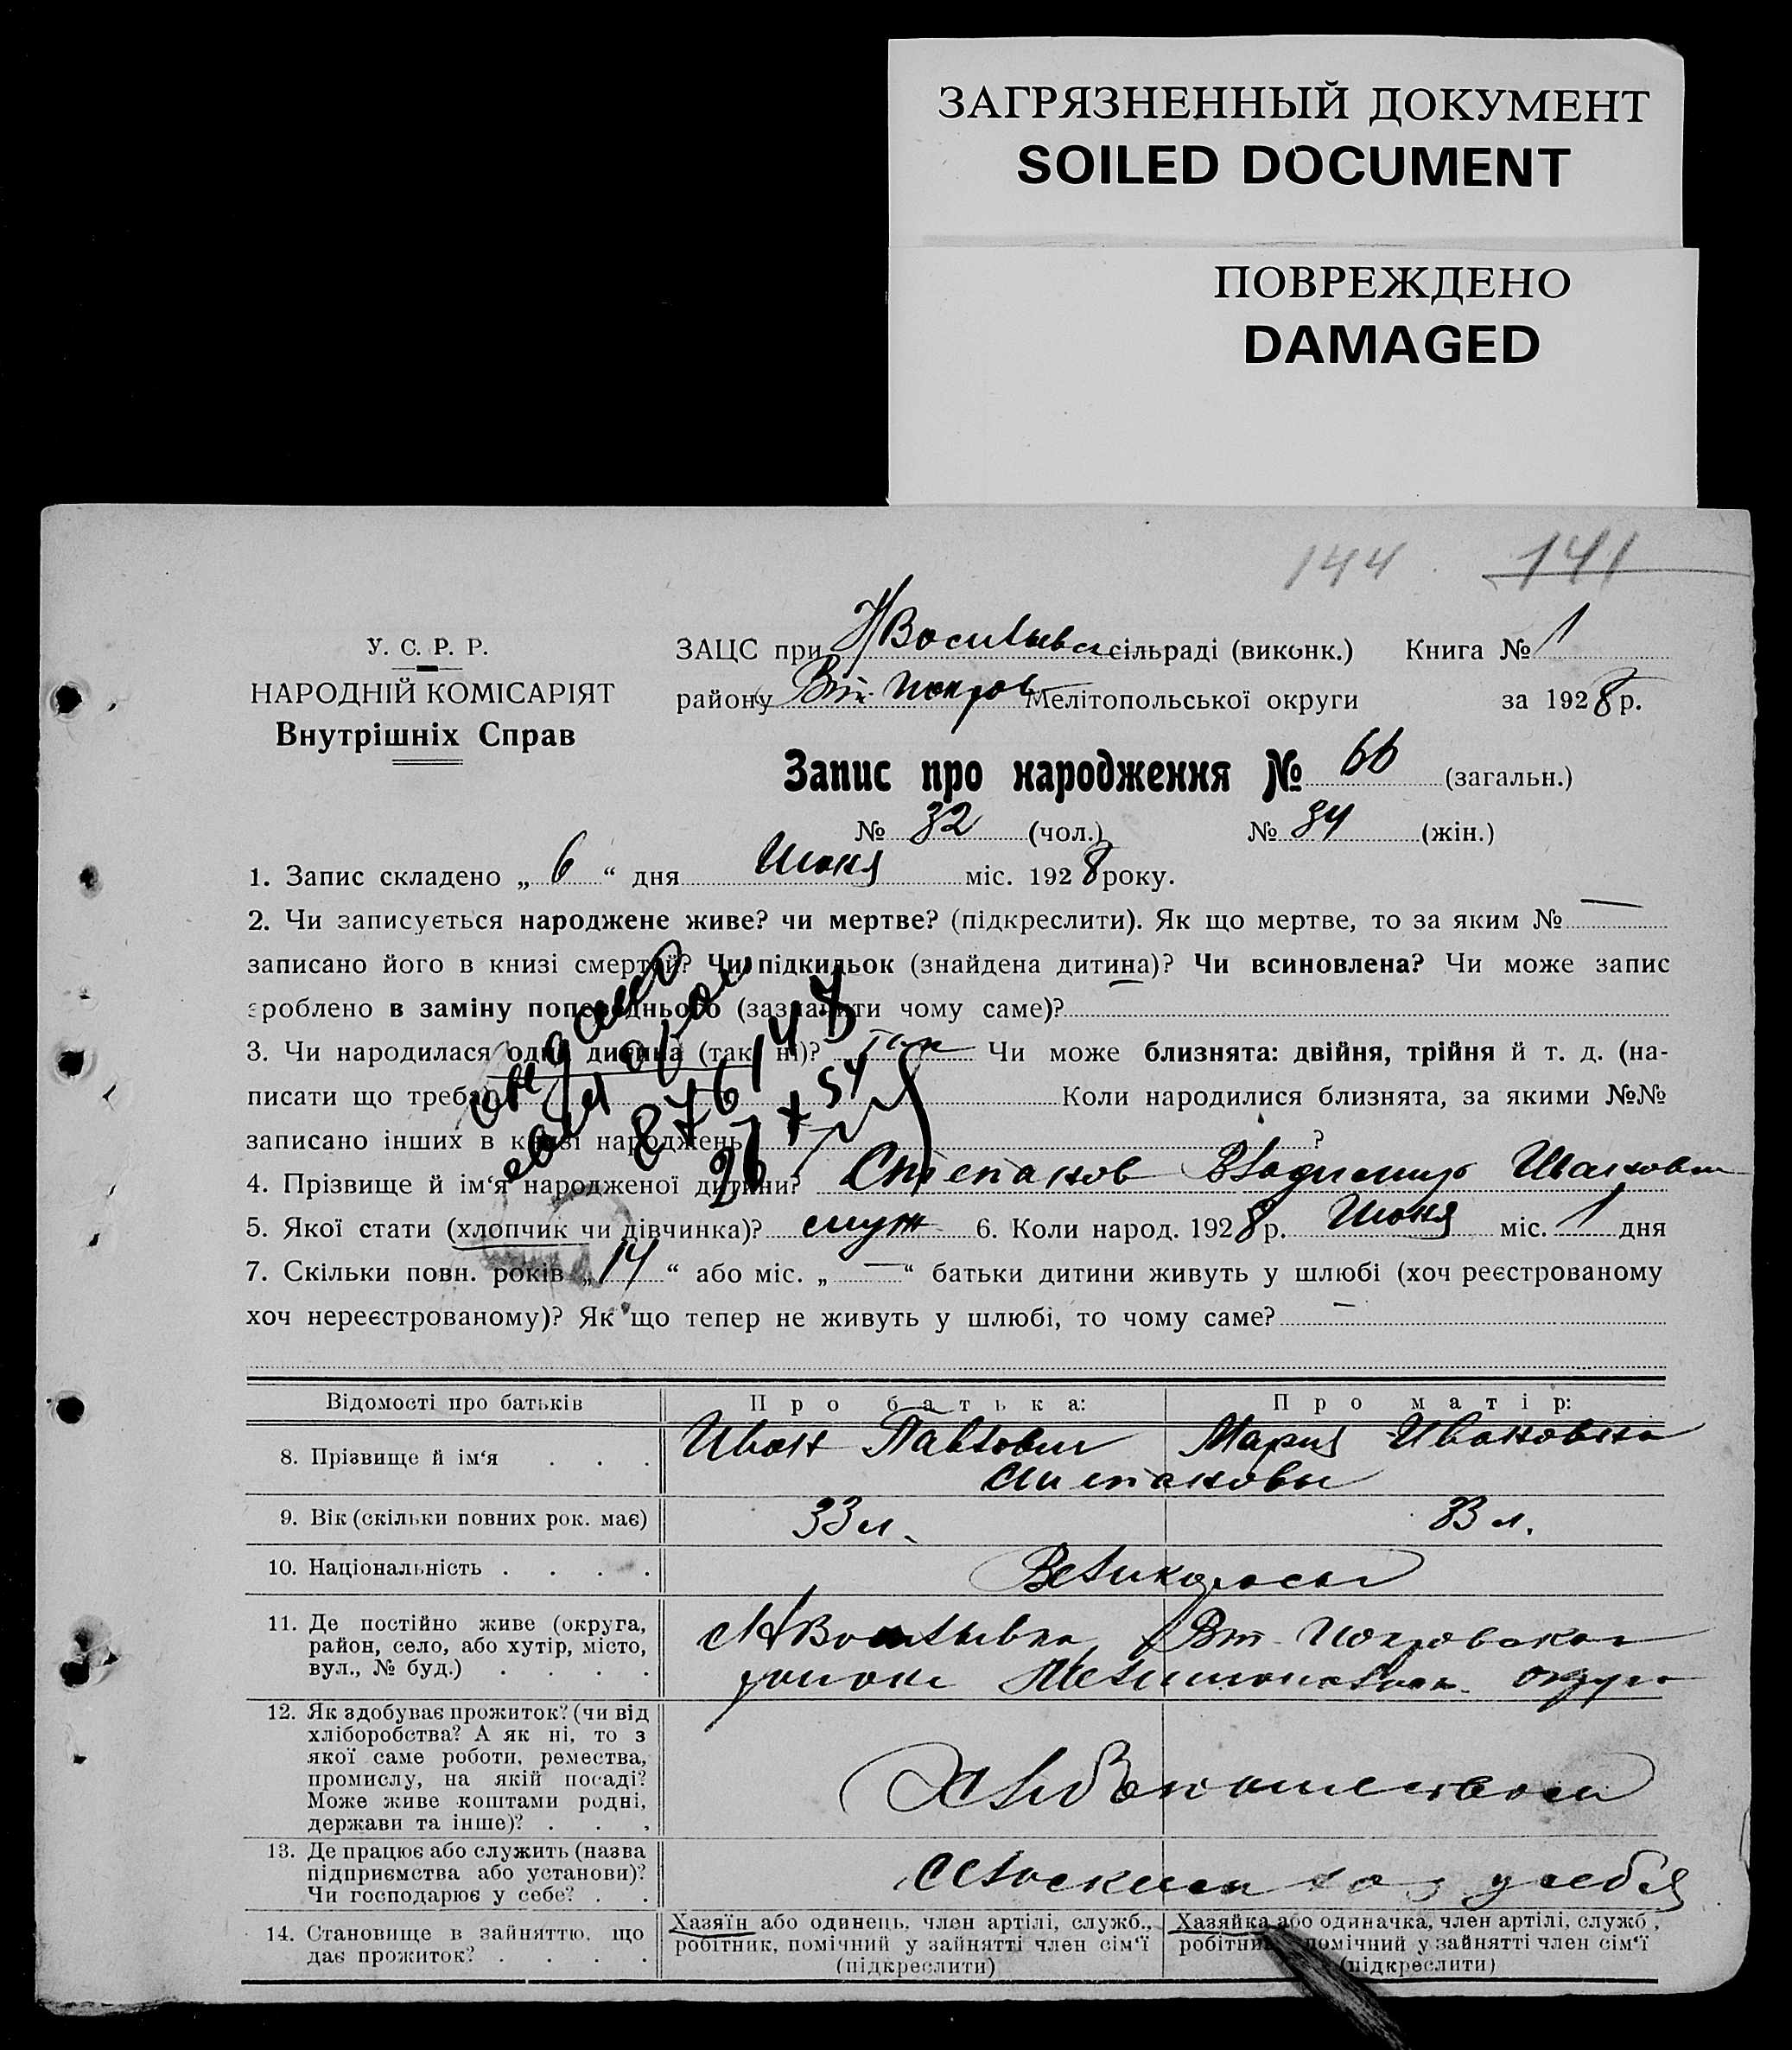 ЗАГРЯЗНЕННЫЙ ДОКУМЕНТ
SOILED DOCUMENT
ПОВРЕЖДЕНО
DAMAGED
144 141
У. С. Р. Р.
НАРОДНІЙ КОМІСАРІЯТ
Внутрішніх Справ
ЗАЦС при сільраді (виконк.) Книга № 1
району Вт. Покров Мелітопольської округи за 1928 р.
Запис про народження № 66 (загальн.)
№ 32 (чол.) № 34 (жін.)
1. Запис складено „ 6 “ дня Июня міс. 1928 року.
2. Чи записується народжене живе? чи мертве? (підкреслити). Як що мертве, то за яким № —
записано його в книзі смертей? Чи підкидьок (знайдена дитина)? Чи всиновлена? Чи може запис
зроблено в заміну попереднього (зазначити чому саме)?
3. Чи народилася одна дитина (так, ні)? так Чи може близнята: двійня, трійня й т. д. (на-
писати що треба) Коли народилися близнята, за якими №№
записано інших в книзі народжень ?
4. Прізвище й ім‘я народженої дитини? Степанов Владимир Иванович
5. Якої стати (хлопчик чи дівчинка)? муж 6. Коли народ. 1928 р. Июня міс. 1 дня
7. Скільки повн. років „ 14 “ або міс. „ — “ батьки дитини живуть у шлюбі (хоч реєстрованому
хоч нереєстрованому)? Як що тепер не живуть у шлюбі, то чому саме? —
Відомості про батьків Про батька: Про матір:
8. Прізвище й ім‘я . . . Иван Павлович Мария Ивановна
Степановы
9. Вік (скільки повних рок. має) 33 л. 33 л.
10. Національність . . . . Великоросы
11. Де постійно живе (округа,
район, село, або хутір, місто,
вул., № буд.) . . . .
Вт. Покровского
района Мелитопольск. округа
12. Як здобуває прожиток? (чи від
хліборобства? А як ні, то з
якої саме роботи, ремества,
промислу, на якій посаді?
Може живе коштами родні,
держави та інше)? . . .
Хлебопашеством
13. Де працює або служить (назва
підприємства або установи)?
Чи господарює у себе? . .
у себя
14. Становище в зайняттю, що
дає прожиток? . . . .
Хазяїн або одинець, член артілі, служб.,
робітник, помічний у зайнятті член сім‘ї
(підкреслити)
Хазяйка або одиначка, член артілі, служб.,
робітник, помічний у зайнятті член сім‘ї
(підкреслити)